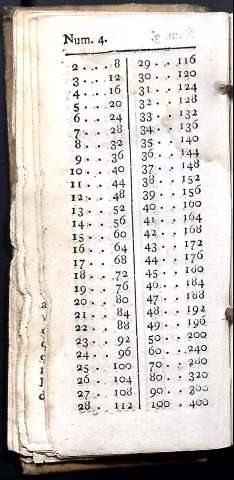 Num. 4.
2 . . . 8 | 29 . . 116
3 . . . 12 | 30 . . 120
4 . . . 16 | 31 . . 124
5 . . . 20 | 32 . . 128
6 . . . 24 | 33 . . 132
7 . . . 28 | 34 . . 136
8 . . . 32 | 35 . . 140
9 . . . 36 | 36 . . 144
10 . . . 40 | 37 . . 148
11 . . . 44 | 38 . . 152
12 . . . 48 | 39 . . 156
13 . . . 52 | 40 . . 160
14 . . . 56 | 41 . . 164
15 . . . 60 | 42 . . 168
16 . . . 64 | 43 . . 172
17 . . . 68 | 44 . . 176
18 . . . 72 | 45 . . 180
19 . . . 76 | 46 . . 184
20 . . . 80 | 47 . . 188
21 . . . 84 | 48 . . 192
22 . . . 88 | 49 . . 196
23 . . . 92 | 50 . . 200
24 . . . 96 | 60 . . 240
25 . . 100 | 70 . . 280
26 . . 104 | 80 . . 320
27 . . 108 | 90 . . 360
28 . . 112 | 100 . . 400